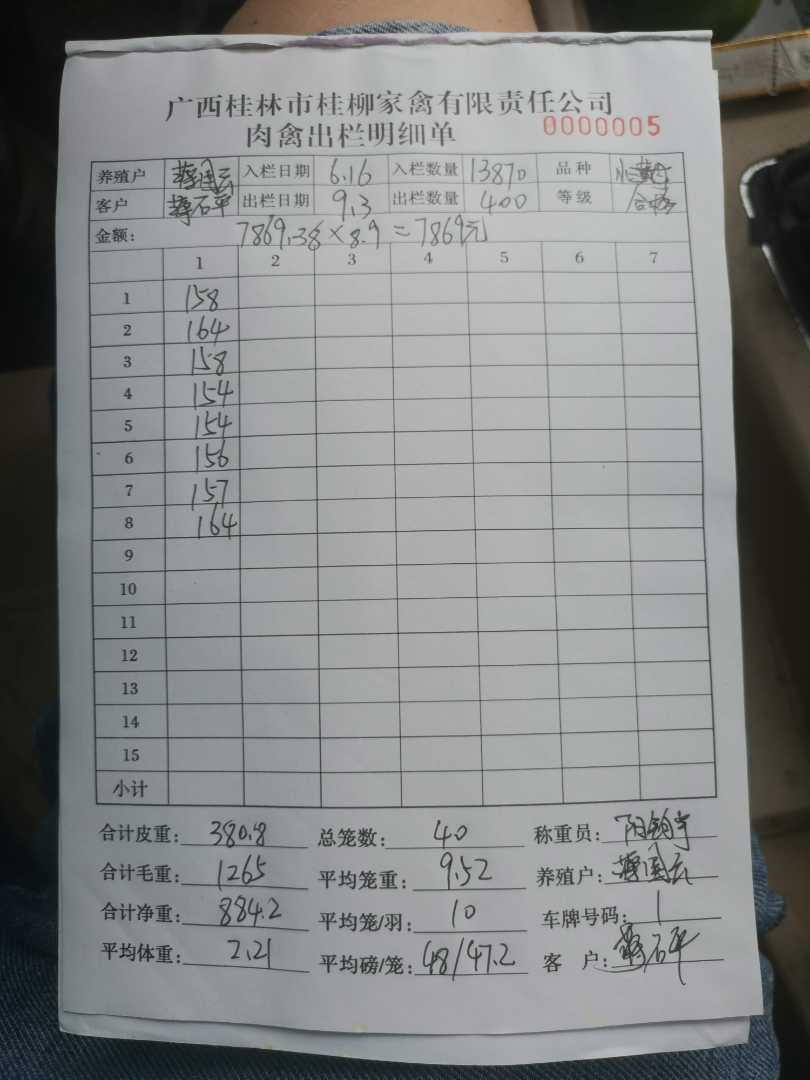 广西桂林市桂柳家禽有限责任公司
肉禽出栏明细单 0000005
养殖户 蒋国云 入栏日期 6.16 入栏数量 13870 品种
客户 蒋石平 出栏日期 9.3 出栏数量 400 等级 合格
金额: 7869.38×8.9=7869元
1 2 3 4 5 6 7
1 158
2 164
3 158
4 154
5 154
6 156
7 157
8 164
9
10
11
12
13
14
15
小计
合计皮重: 380.8 总笼数: 40 称重员:
合计毛重: 1265 平均笼重: 9.52 养殖户: 蒋国云
合计净重: 884.2 平均笼/羽: 10 车牌号码: 1
平均体重: 2.21 平均磅/笼: 48/47.2 客户: 蒋石平